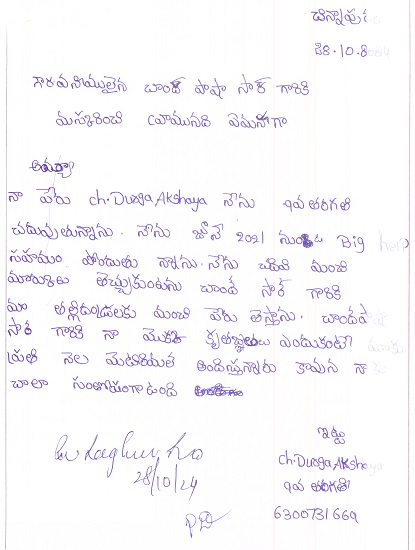 చిన్నాపురం
28.10.2024
గౌరవనీయులైన చాంద్ పాషా సార్ గారికి
మస్కరించి వ్రాయునది ఏమనగా
నా పేరు ch.Durga,Akshaya నేను 9వ తరగతి
చదువుతున్నాను. నేను జూన్ 2021 నుండి Big help
సహాయం పొందుతు న్నాను. నేను చదివి మంచి
మార్కులు తెచ్చుకుంటును చాంద్ సార్ గారికి
మా తల్లిదండ్రులకు మంచి పేరు తెస్తాను. చాంద్
సార్ గారికి నా మొదటి కృతజ్ఞతలు ఎందుకంటే మాకు
ప్రతి నెల మెటీరియల్ అందిస్తున్నారు కావున నా
చాలా సంతోషంగా ఉంది
28/10/24
ఇట్లు
ch.Durga,Akshaya
9వ తరగతి
6300731669